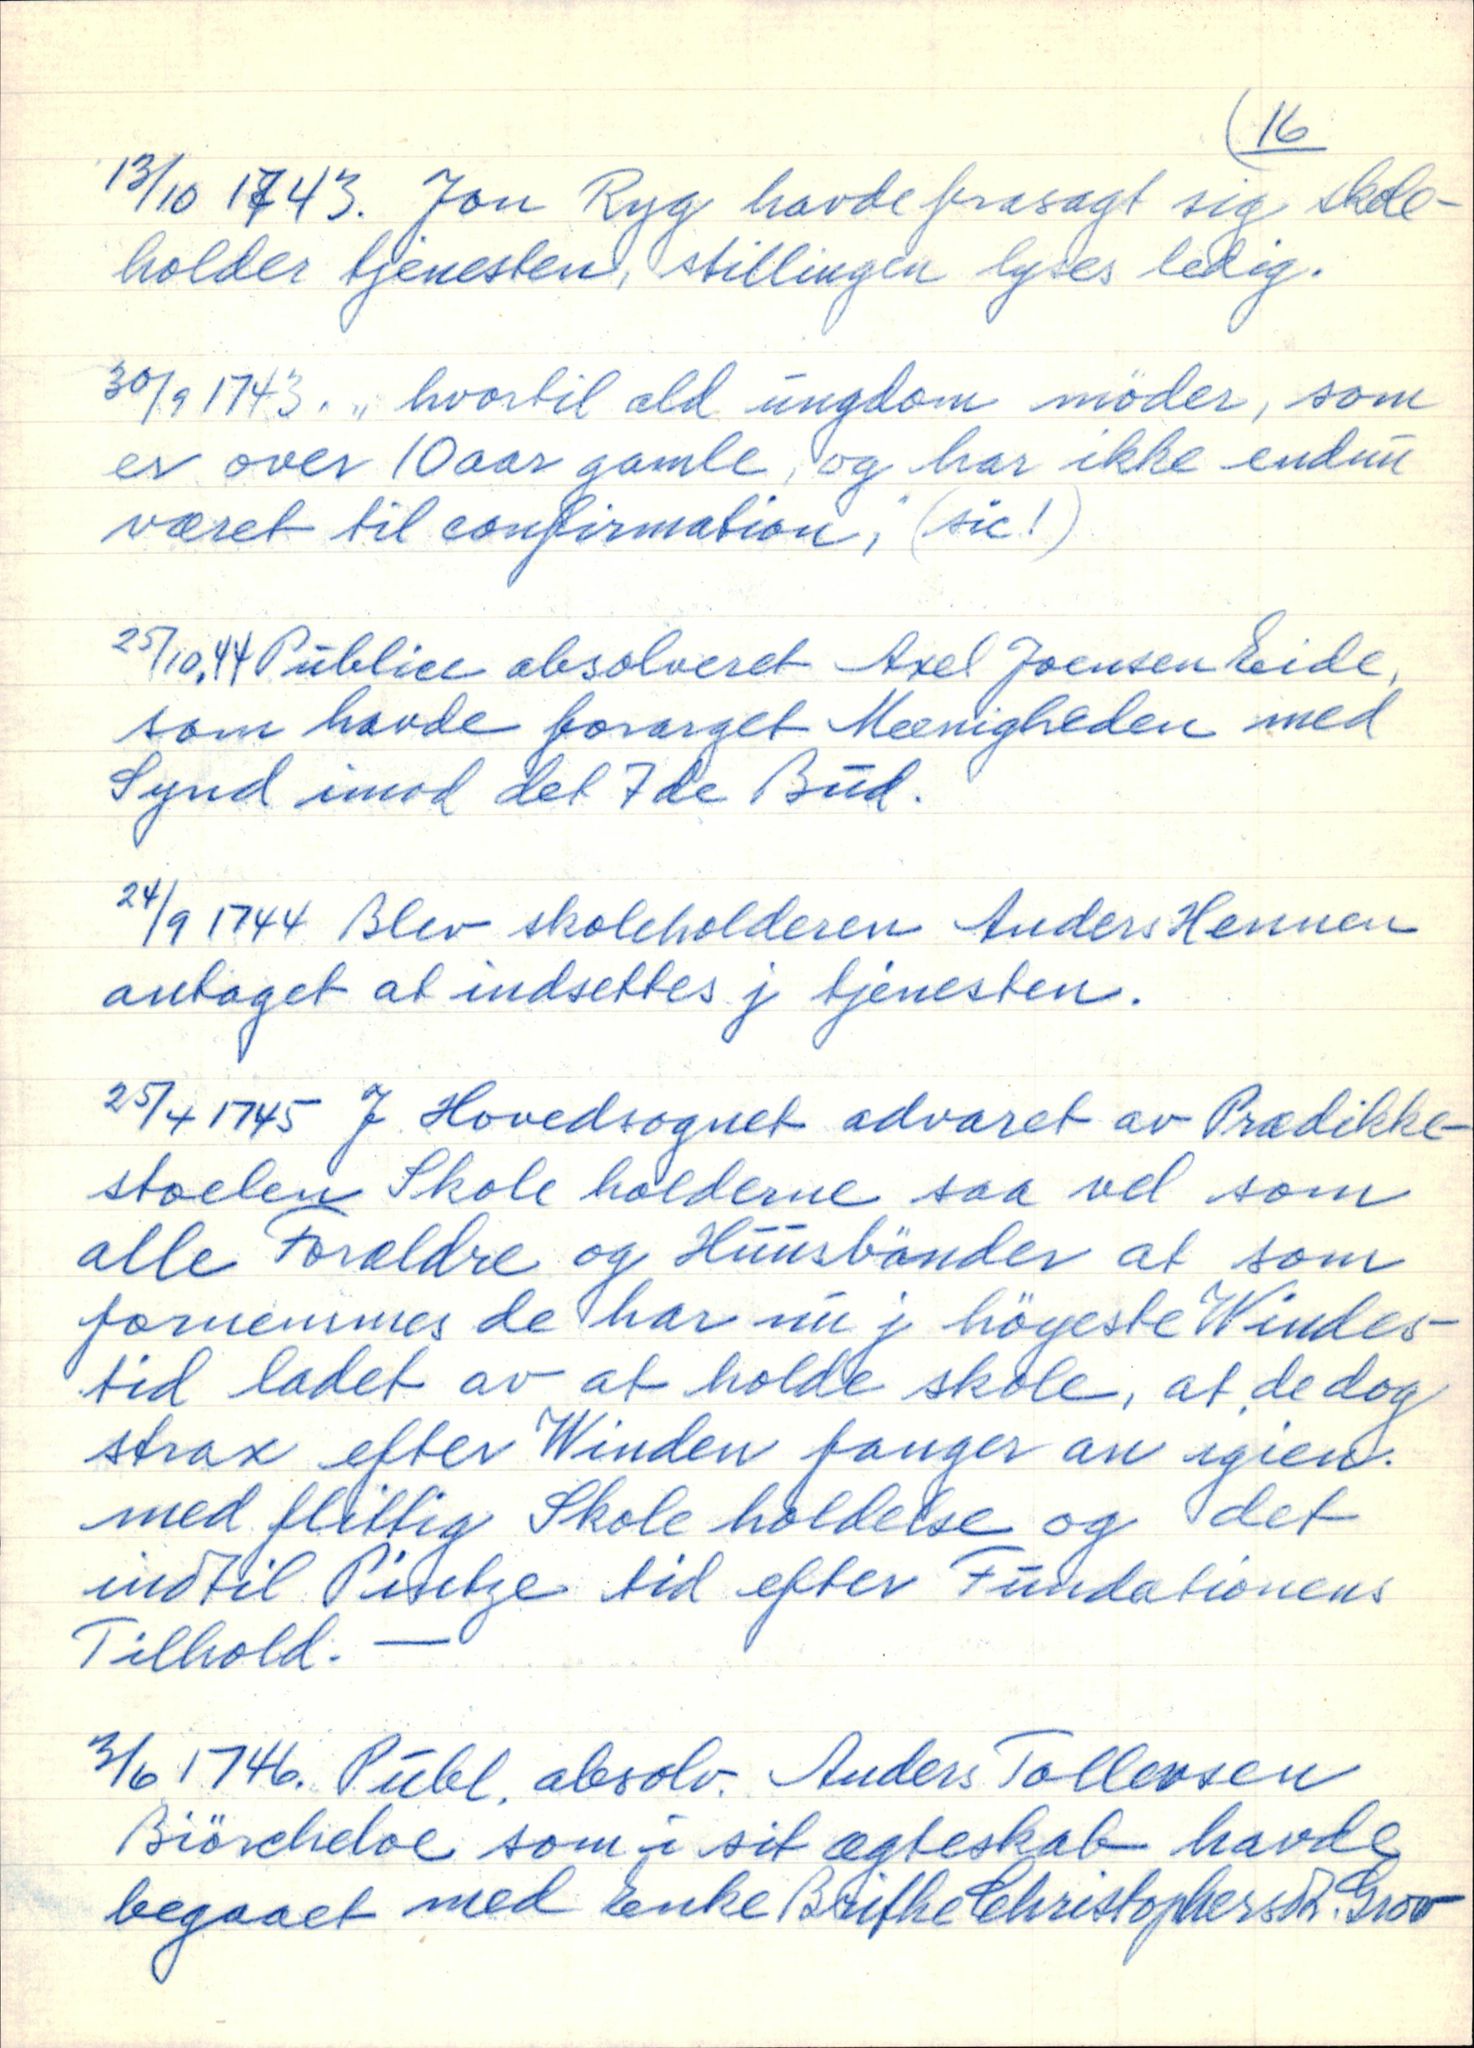 16
13/10 1743. Jon Ryg havde frasagt sig skole-
holder tjenesten, stillingen lyses ledig.
30/9 1743. „ hvortil ald ungdom möder, som
er over 10 aar gamle, og har ikke endnu
været til confirmation," (sic!)
25/10.44 Publice absolveret Axel Joensen Eide,
som havde forarget Meenigheden med
Synd imod det 7de Bud.
24/9 1744 Blev skoleholderen Anders Hennen
antaget at indsettes j tjenesten.
25/4 1745 J Hovedsognet advaret av Prædikke-
stoelen Skole holderne saa vel som
alle Forældre og Huusbönder at som
fornemmes de har nu j höyeste Windes-
tid ladet av at holde skole, at de dog
strax efter Winden fanger an igien.
med flittig Skole holdelse og det
indtil Pintze tid efter Fundationens
Tilhold. —
3/6 1746. Publ. absolv. Anders Tollevsen
Biörcheloe som i sit ægteskab havde
begaaet med Enke Brithe Christophersdr. Grov